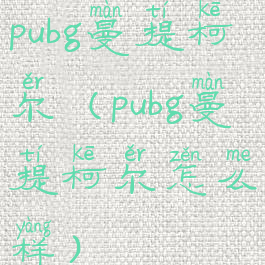 màn tí kē
pubg曼提柯
ěr màn
尔（pubg曼
tí kē ěr zěn me
提柯尔怎么
yàng
样）